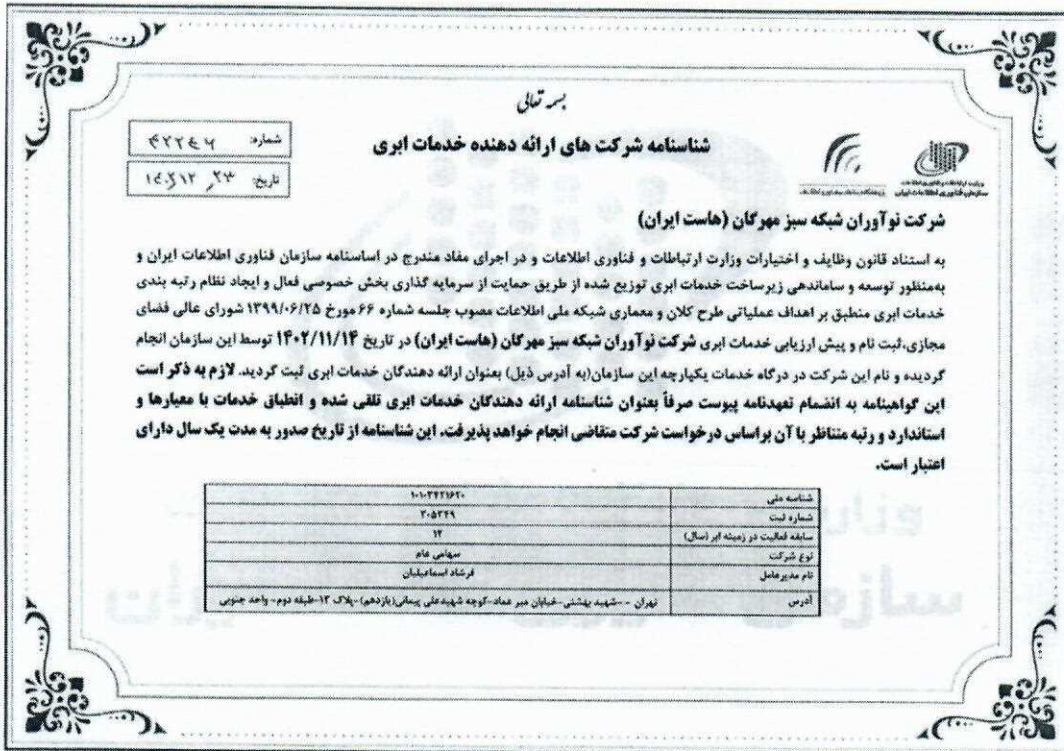 بسمه تعالی
شناسنامه شرکت های ارائه دهنده خدمات ابری
شماره: ۴۲۲۴۷
تاریخ: ۱۴۰۲/۱۲/۲۳
وزارت ارتباطات و فناوری اطلاعات
سازمان فناوری اطلاعات ایران
شرکت نوآوران شبکه سبز مهرگان (هاست ایران)
به استناد قانون وظایف و اختیارات وزارت ارتباطات و فناوری اطلاعات و در اجرای مفاد مندرج در اساسنامه سازمان فناوری اطلاعات ایران و
به‌منظور توسعه و ساماندهی زیرساخت خدمات ابری توزیع شده از طریق حمایت از سرمایه گذاری بخش خصوصی فعال و ایجاد نظام رتبه بندی
خدمات ابری منطبق بر اهداف عملیاتی طرح کلان و معماری شبکه ملی اطلاعات مصوب جلسه شماره ۶۶ مورخ ۱۳۹۹/۰۶/۲۵ شورای عالی فضای
مجازی،ثبت نام و پیش ارزیابی خدمات ابری شرکت نوآوران شبکه سبز مهرگان (هاست ایران) در تاریخ ۱۴۰۲/۱۱/۱۴ توسط این سازمان انجام
گردیده و نام این شرکت در درگاه خدمات یکپارچه این سازمان(به آدرس ذیل) بعنوان ارائه دهندگان خدمات ابری ثبت گردید. لازم به ذکر است
این گواهینامه به انضمام تعهدنامه پیوست صرفاً بعنوان شناسنامه ارائه دهندگان خدمات ابری تلقی شده و انطباق خدمات با معیارها و
استاندارد و رتبه متناظر با آن براساس درخواست شرکت متقاضی انجام خواهد پذیرفت. این شناسنامه از تاریخ صدور به مدت یک سال دارای
اعتبار است.
شناسه ملی ۱۰۱۰۳۴۲۱۶۲۰
شماره ثبت ۳۰۵۳۴۹
سابقه فعالیت در زمینه ابر (سال) ۱۲
نوع شرکت سهامی عام
نام مدیرعامل فرشاد اسماعیلیان
آدرس تهران - -شهید بهشتی-خیابان میر عماد-کوچه شهیدعلی پیمانی(یازدهم)-پلاک ۱۳-طبقه دوم- واحد جنوبی